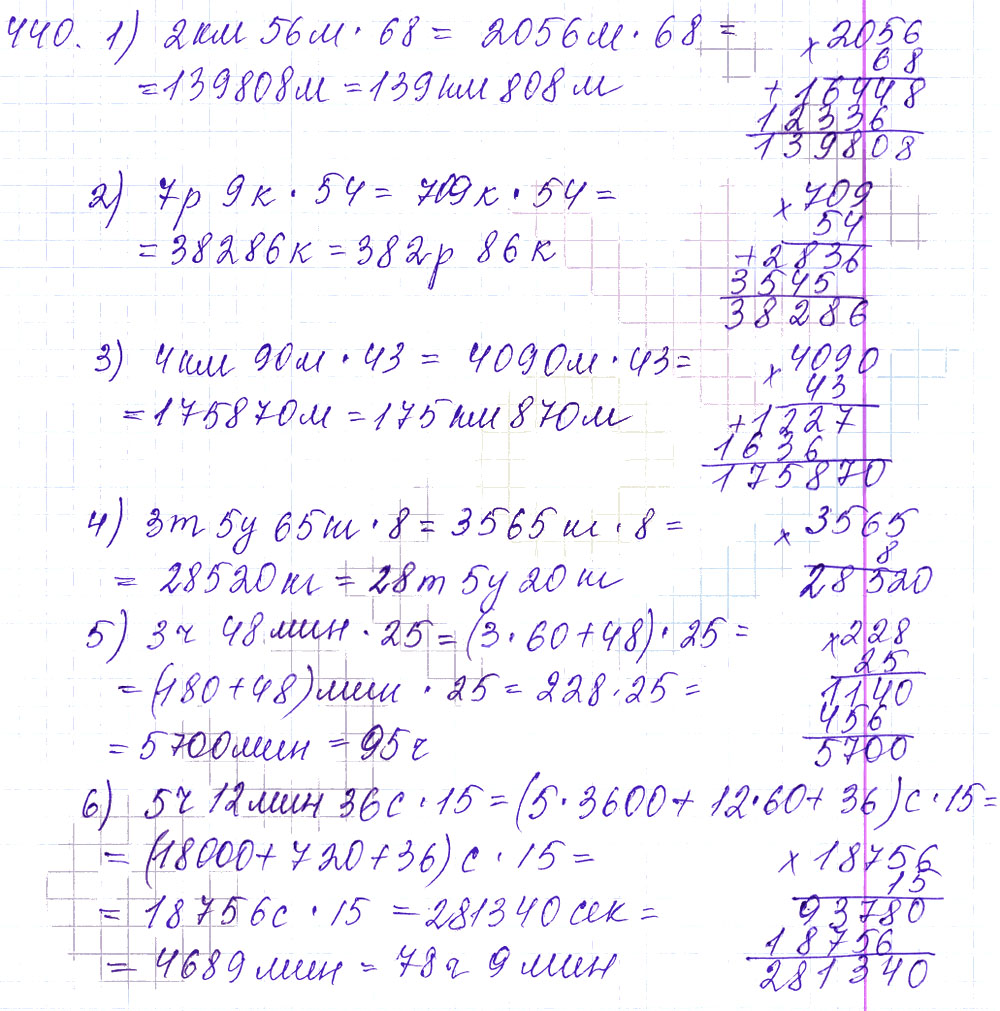 440. 1) 2км 56м · 68 = 2056м · 68 =
= 139808м = 139км 808м
× 2056
68
+ 16448
12336
139808
2) 7р 9к · 54 = 709к · 54 =
= 38286к = 382р 86к
× 709
54
+ 2836
3545
38286
3) 4км 90м · 43 = 4090м · 43 =
= 175870м = 175км 870м
× 4090
43
+ 1227
1636
175870
4) 3т 5ц 65кг · 8 = 3565кг · 8 =
= 28520кг = 28т 5ц 20кг
× 3565
8
28520
5) 3ч 48мин · 25 = (3 · 60 + 48) · 25 =
= (180 + 48)мин · 25 = 228 · 25 =
= 5700мин = 95ч
× 228
25
1140
456
5700
6) 5ч 12мин 36с · 15 = (5 · 3600 + 12 · 60 + 36)с · 15 =
= (18000 + 720 + 36)с · 15 =
= 18756с · 15 = 281340сек =
= 4689мин = 78ч 9мин
× 18756
15
93780
18756
281340